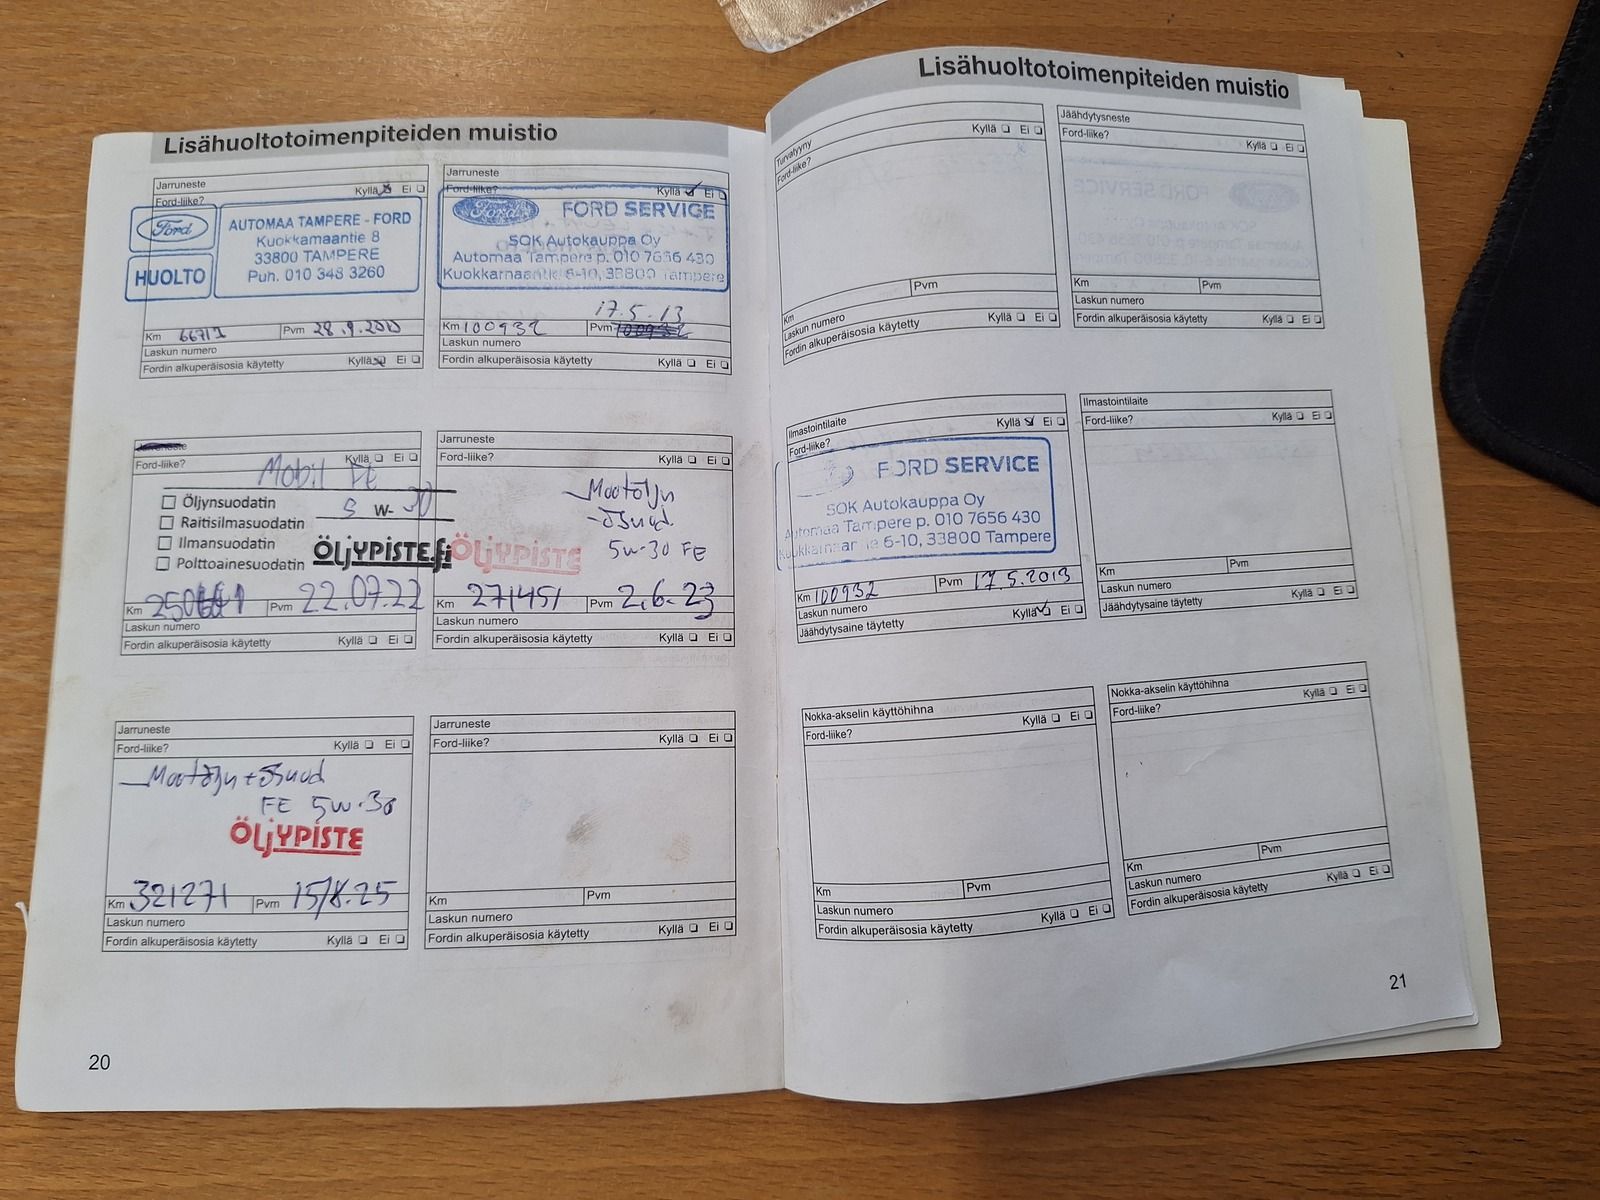 Lisähuoltotoimenpiteiden muistio
Jarruneste
Ford-liike? Kyllä Ei
Ford
HUOLTO
AUTOMAA TAMPERE - FORD
Kuokkamaantie 8
33800 TAMPERE
Puh. 010 348 3260
Km 66711 Pvm 28.9.2010
Laskun numero
Fordin alkuperäisosia käytetty Kyllä Ei
Jarruneste
Ford-liike? Kyllä Ei
Ford FORD SERVICE
SOK Autokauppa Oy
Automaa Tampere p. 010 7656 430
Kuokkamaantie 6-10, 33800 Tampere
17.5.13
Km 100932 Pvm 100932
Laskun numero
Fordin alkuperäisosia käytetty Kyllä Ei
Jarruneste
Ford-liike? Kyllä Ei
Mobil FE
Öljynsuodatin 5 W- 30
Raitisilmasuodatin
Ilmansuodatin
Polttoainesuodatin
ÖLJYPISTE.fi
Km Pvm 22.07.22
Laskun numero
Fordin alkuperäisosia käytetty Kyllä Ei
Jarruneste
Ford-liike? Kyllä Ei
Mootöljy
5w-30 FE
ÖLJYPISTE
Km 271451 Pvm 2.6.23
Laskun numero
Fordin alkuperäisosia käytetty Kyllä Ei
Jarruneste
Ford-liike? Kyllä Ei
Mootöljy + ösuod
FE 5w-30
ÖLJYPISTE
Km 321271 Pvm 15/8.25
Laskun numero
Fordin alkuperäisosia käytetty Kyllä Ei
Jarruneste
Ford-liike? Kyllä Ei
Km Pvm
Laskun numero
Fordin alkuperäisosia käytetty Kyllä Ei
20
Lisähuoltotoimenpiteiden muistio
Turvatyyny
Ford-liike? Kyllä Ei
Km Pvm
Laskun numero
Fordin alkuperäisosia käytetty Kyllä Ei
Jäähdytysneste
Ford-liike? Kyllä Ei
Km Pvm
Laskun numero
Fordin alkuperäisosia käytetty Kyllä Ei
Ilmastointilaite
Ford-liike? Kyllä Ei
FORD SERVICE
SOK Autokauppa Oy
Automaa Tampere p. 010 7656 430
Kuokkamaantie 6-10, 33800 Tampere
Km 100932 Pvm 17.5.2013
Laskun numero
Jäähdytysaine täytetty Kyllä Ei
Ilmastointilaite
Ford-liike? Kyllä Ei
Km Pvm
Laskun numero
Jäähdytysaine täytetty Kyllä Ei
Nokka-akselin käyttöhihna
Ford-liike? Kyllä Ei
Km Pvm
Laskun numero
Fordin alkuperäisosia käytetty Kyllä Ei
Nokka-akselin käyttöhihna
Ford-liike? Kyllä Ei
Km Pvm
Laskun numero
Fordin alkuperäisosia käytetty Kyllä Ei
21